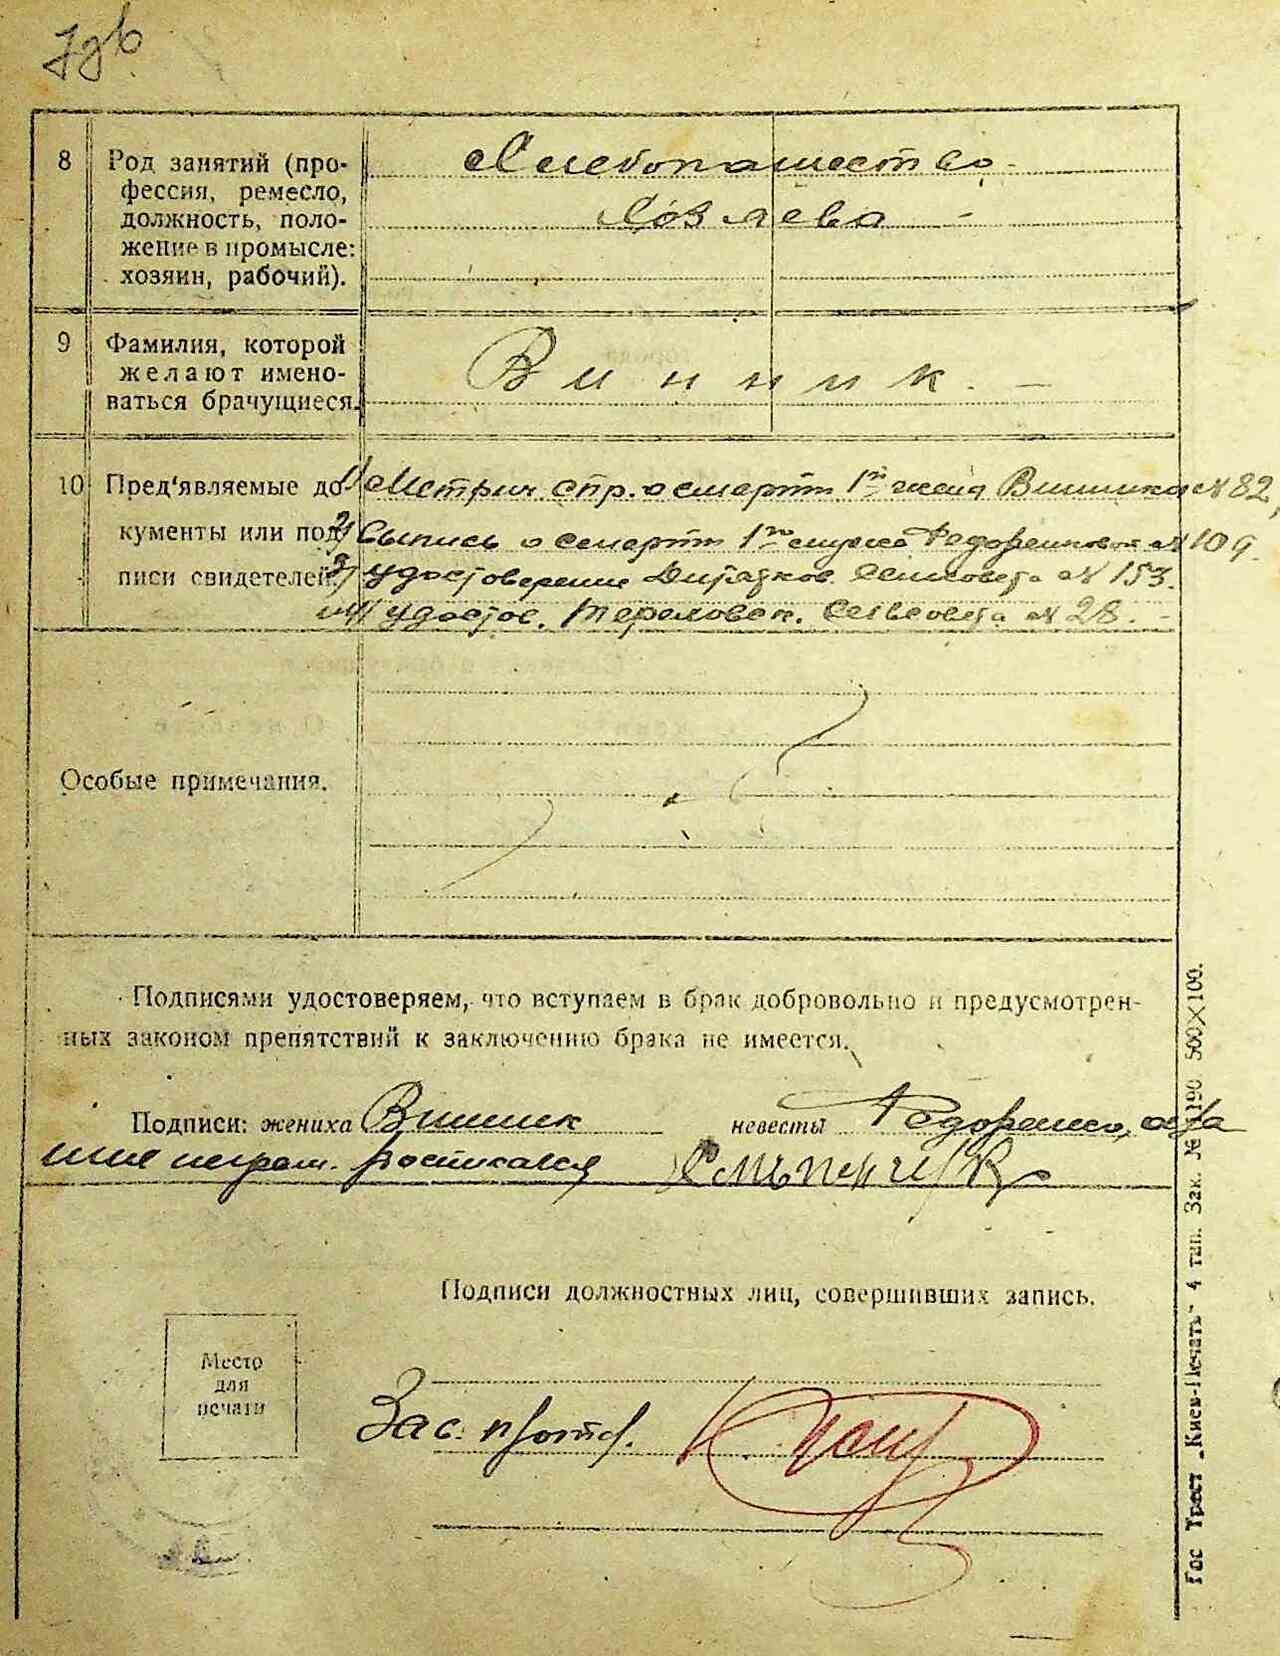 8 Род занятий (про-
фессия, ремесло,
должность, поло-
жение в промысле:
хозяин, рабочий).
Хлебопашество
Хозяева
9 Фамилия, которой
желают имено-
ваться брачущиеся.
Винник
10 Пред'являемые до-
кументы или под-
писи свидетелей.
1/ Метрич. спр. о смерти 1й жены Винника № 82,
2/ Выпись о смерти 1го мужа Федоренковой № 109
3/ удостоверение сельсовета № 153.
удостов. сельсовета № 28.
Особые примечания.
Подписями удостоверяем, что вступаем в брак добровольно и предусмотрен-
ных законом препятствий к заключению брака не имеется.
Подписи: жениха Винник невесты
неграм. росписался
Подписи должностных лиц, совершивших запись.
Место
для
печати
Зас.
Гос Трест „Киев-Печать" 4 тип. Зак. № 1190. 500X100.